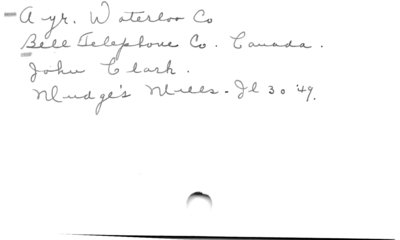 Ayr. Waterloo Co
Bell Telephone Co. Canada.
John Clark.
Mudge's Mills. Jl 30 '49.